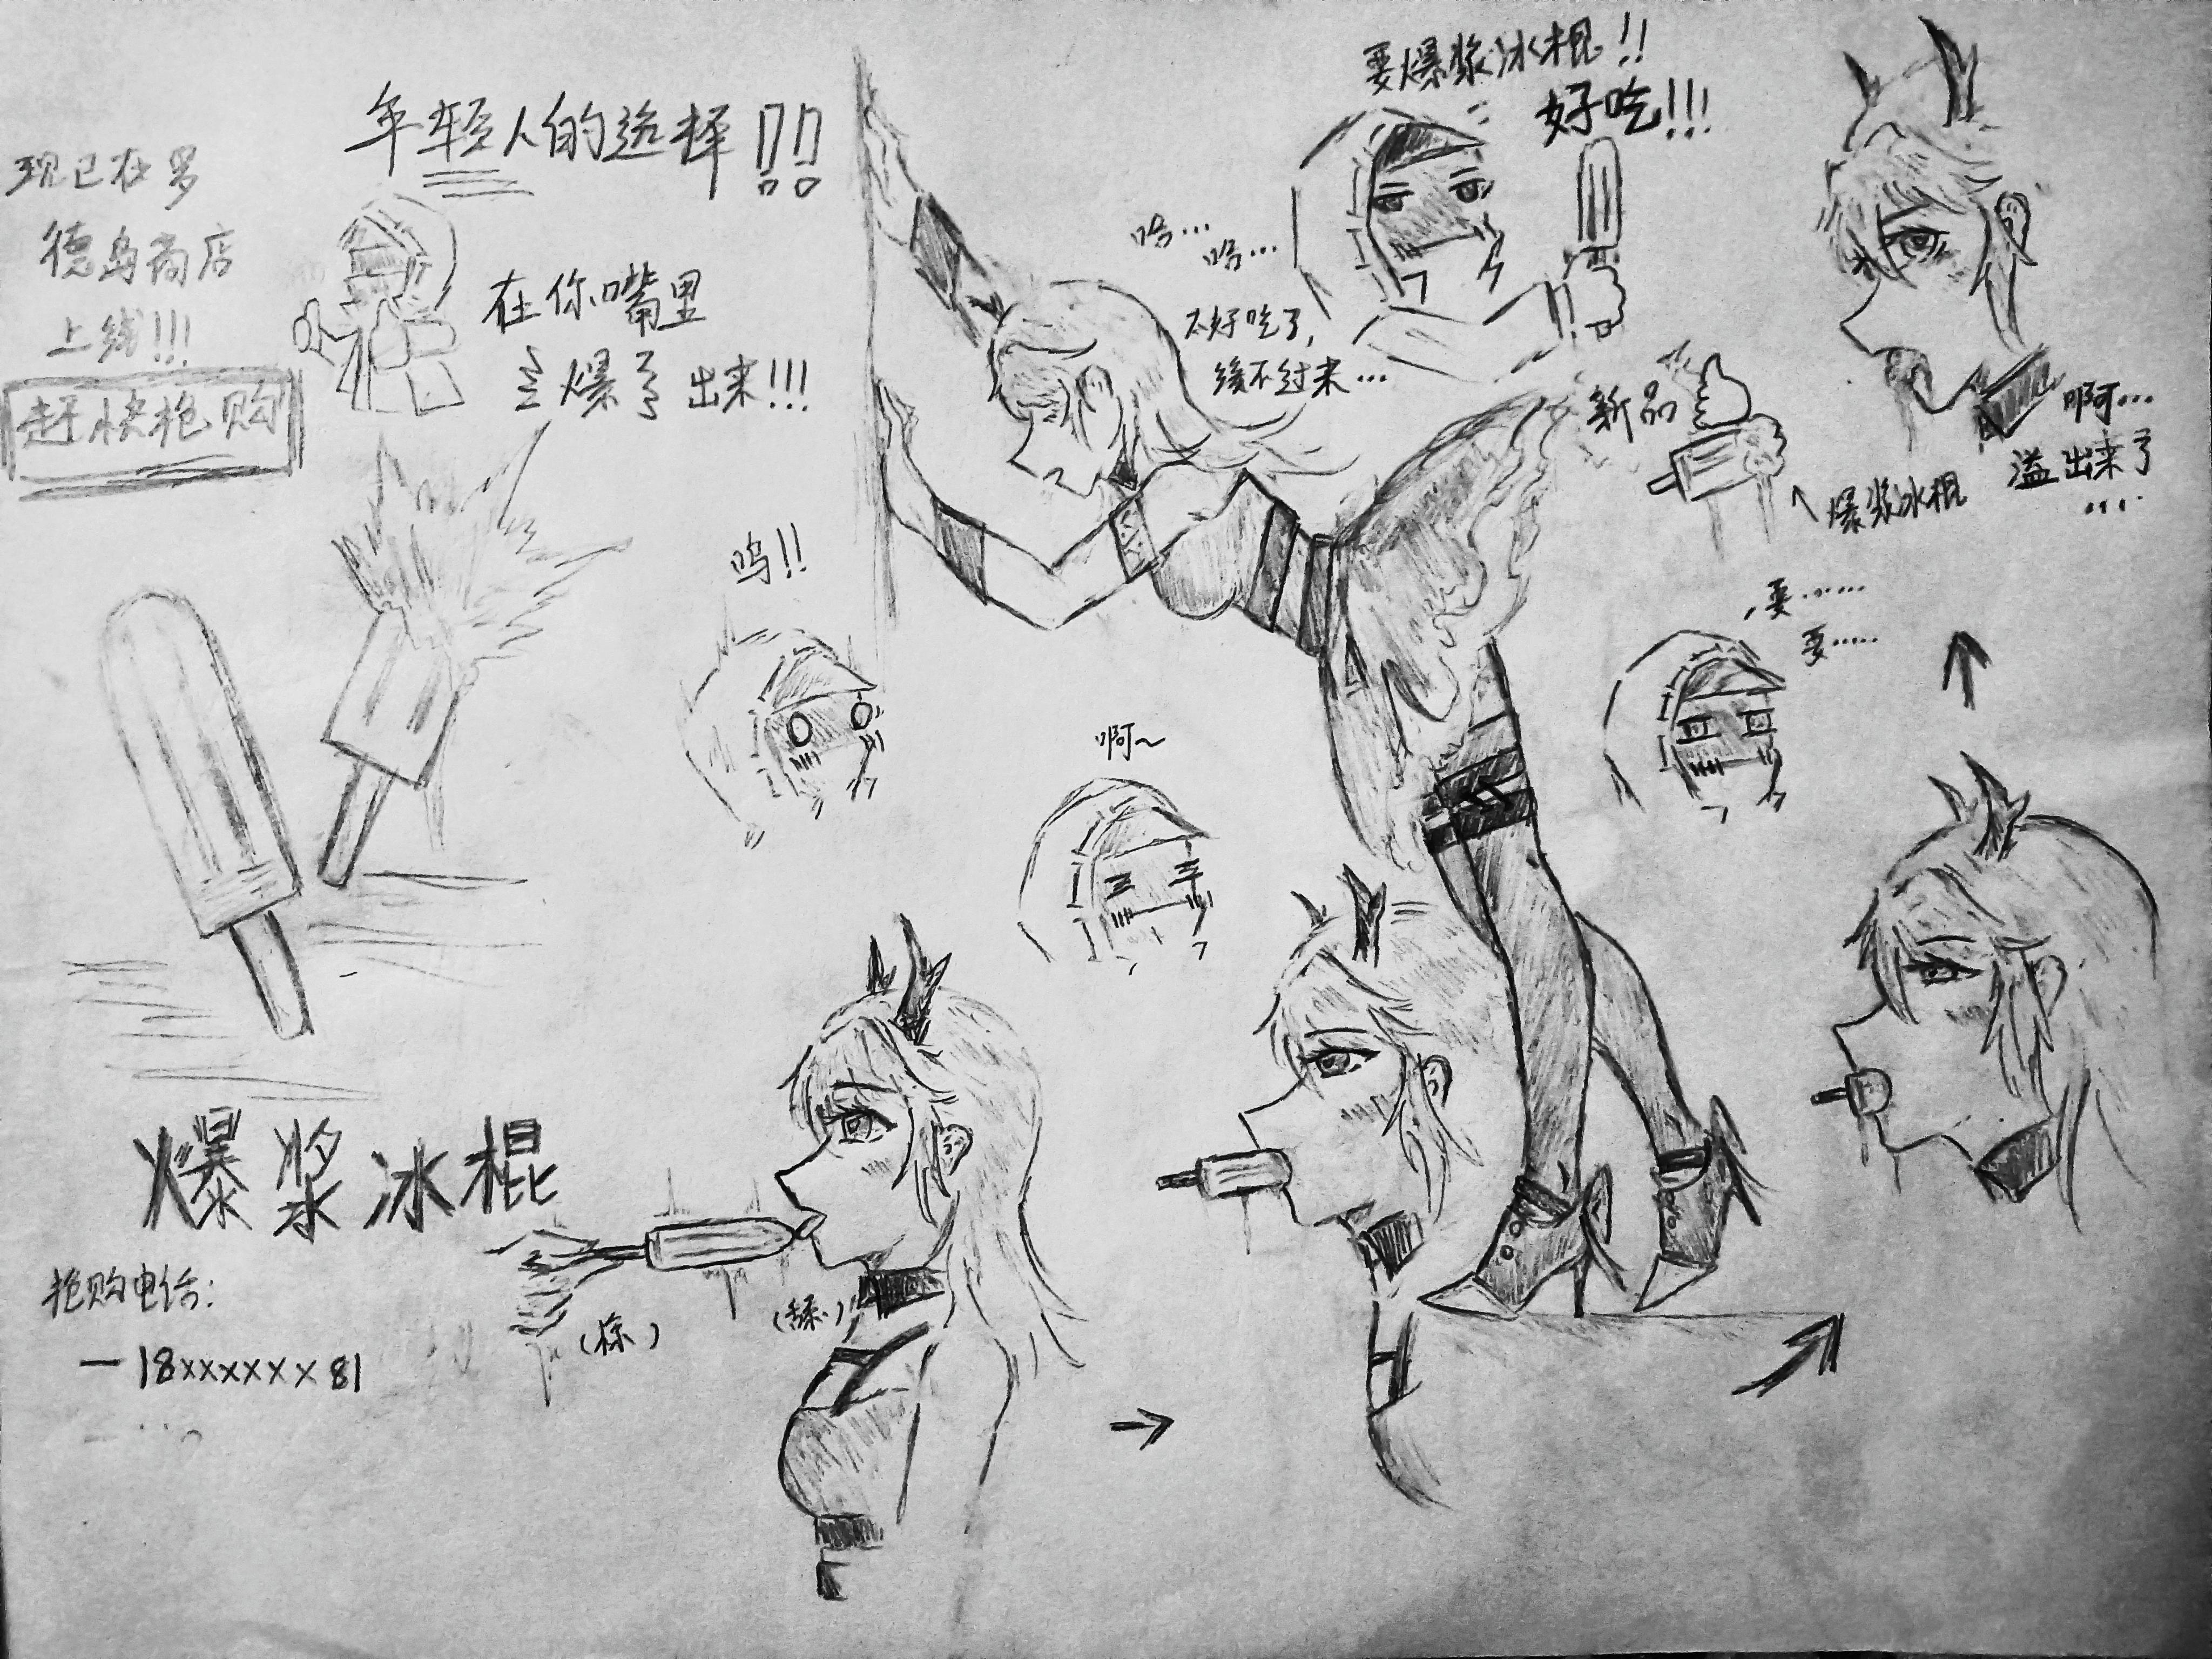 年轻人的选择!!
现已在罗
德岛商店
上线!!!
赶快抢购
在你嘴里
爆了出来!!!
要爆浆冰棍!!
好吃!!!
哈...
哈...
不好吃了,
缓不过来...
新品
爆浆冰棍
啊...
溢出来了
...
呜!!
啊~
要......
要.....
爆浆冰棍
抢购电话:
一18xxxxxx81
(舔)